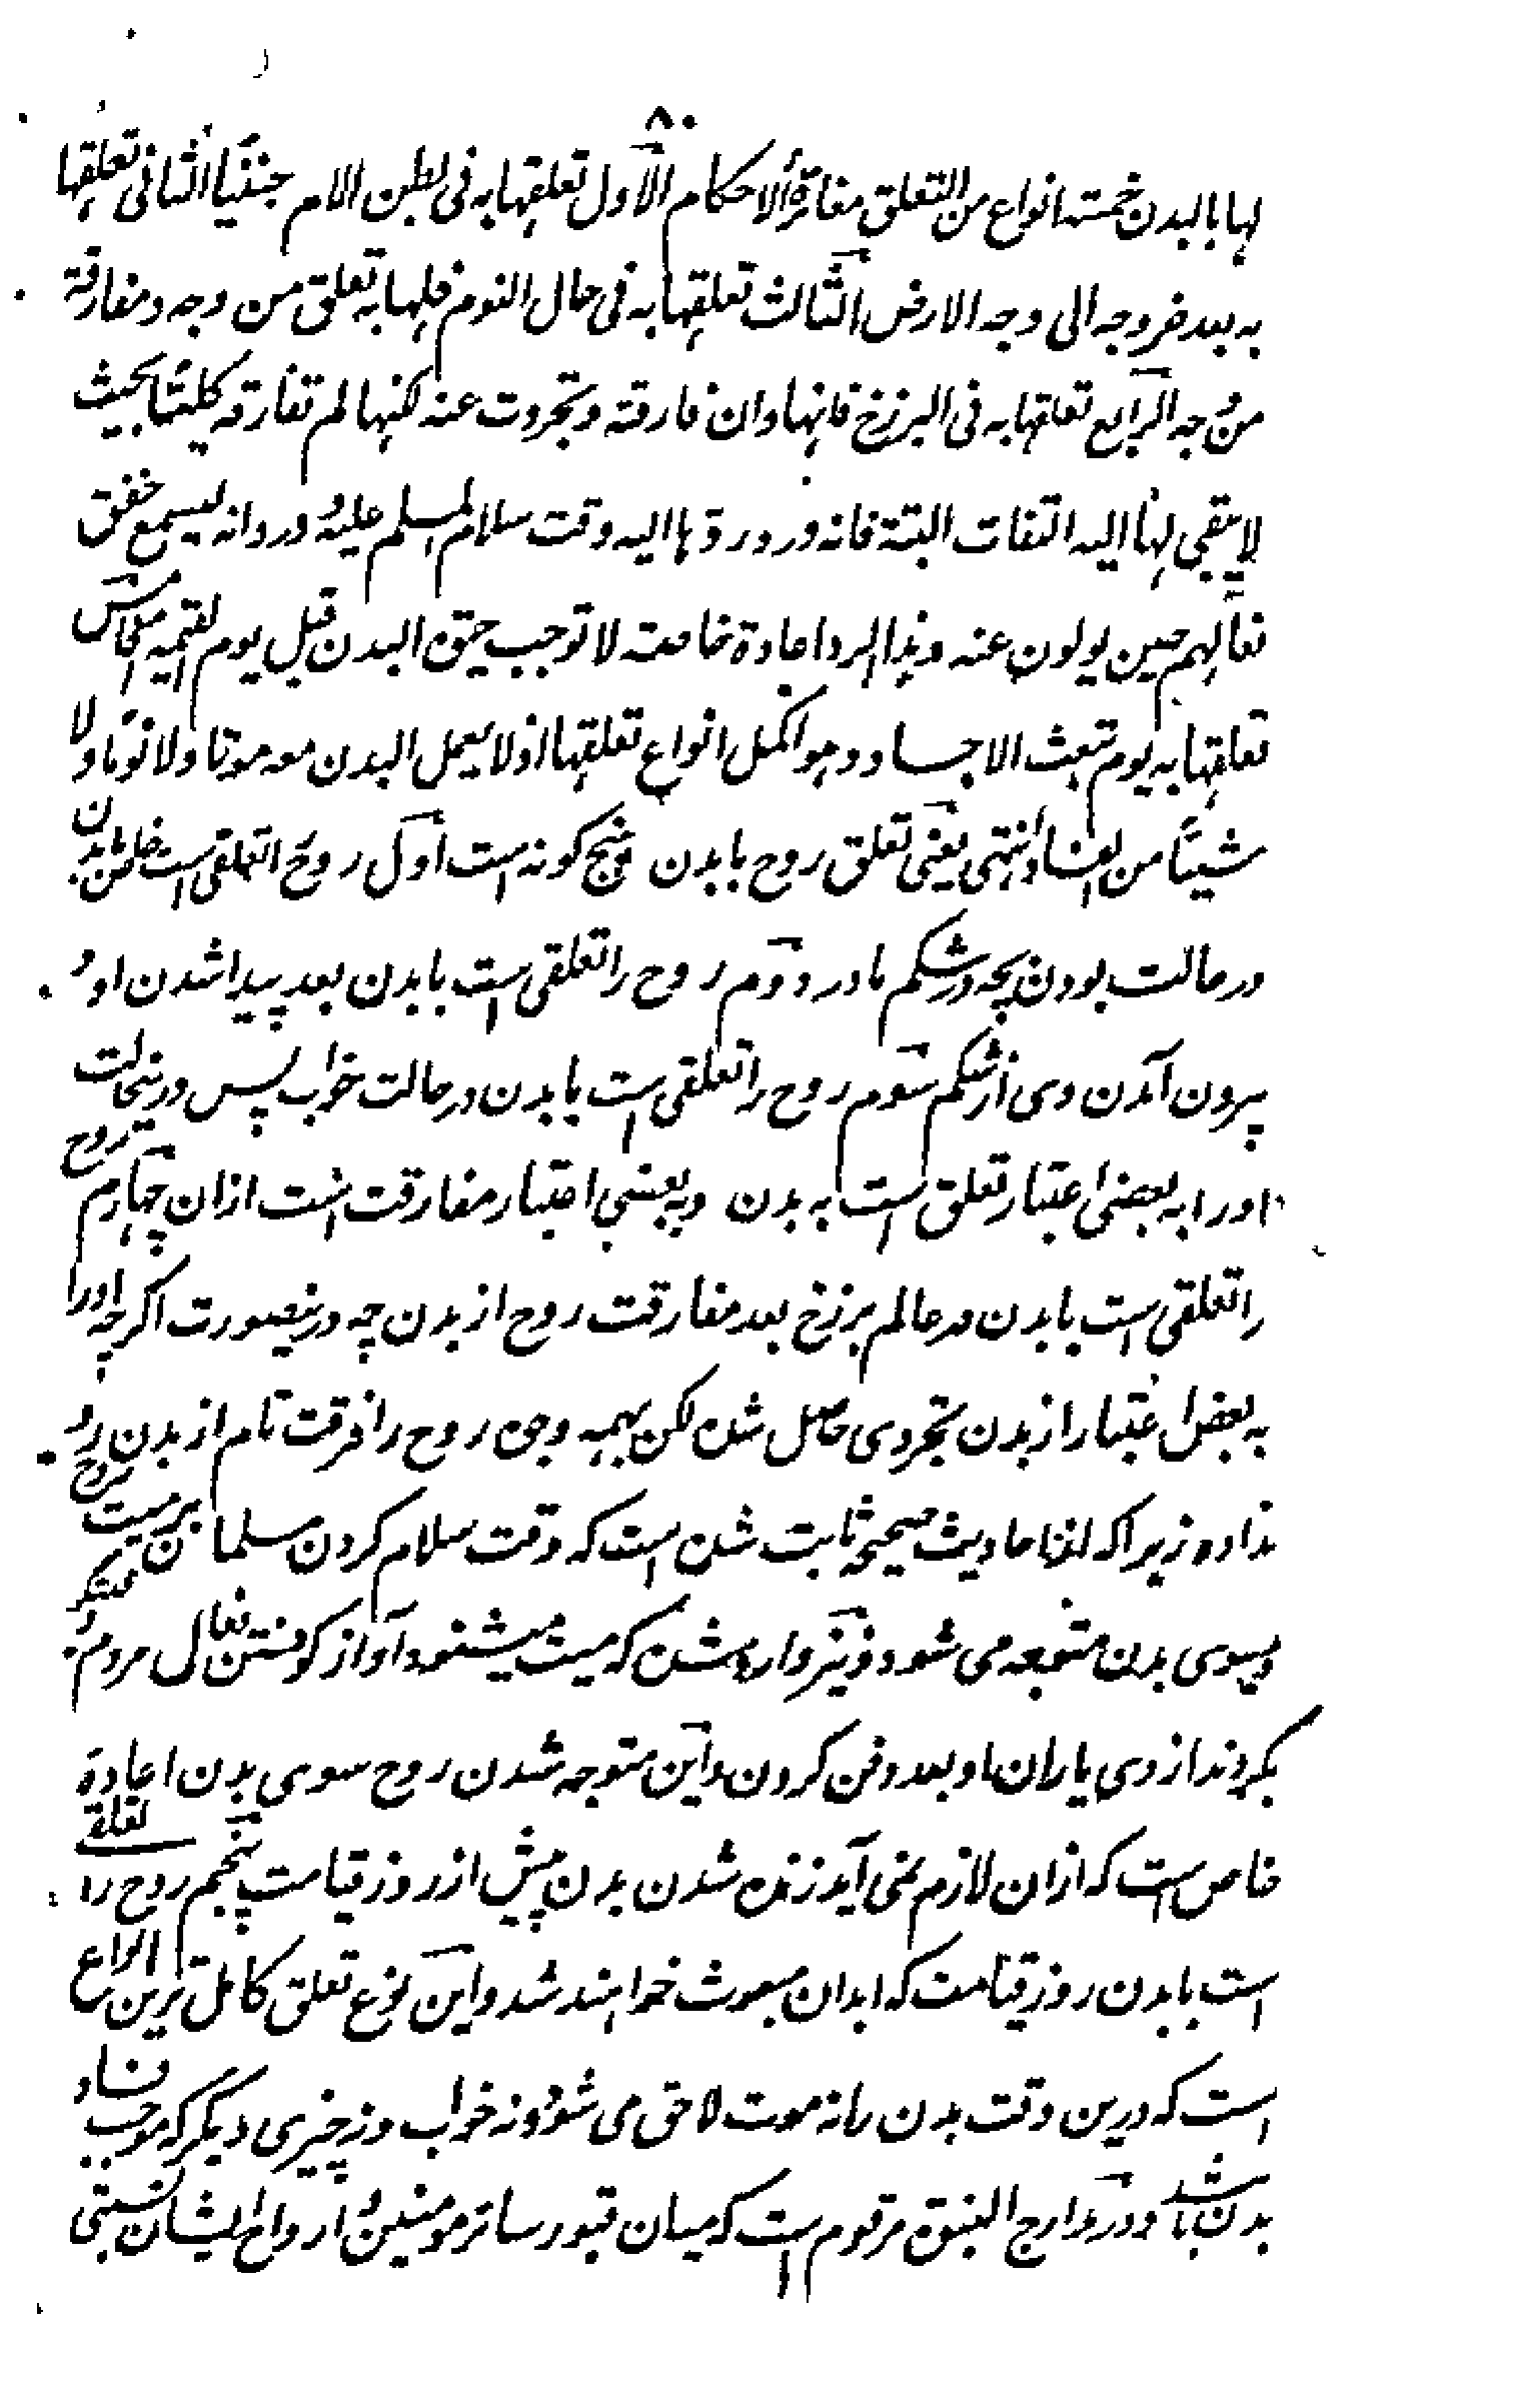 ۸۰
لها بالبدن خمسة انواع من التعلق مغائرة الاحکام الاول تعلقها به فی بطن الام جنینًا الثانی تعلقها
به بعد خروجه الی وجه الارض الثالث تعلقها به فی حال النوم فلها به تعلق من وجه و مفارقة
من وجه الرابع تعلقها به فی البرزخ فانها وان فارقته وتجردت عنه لکنها لم تفارقه کلیتًا بحیث
لا یبقی لها الیه التفات البتة فانه ورد ردها الیه وقت سلام المسلم علیه و ورد انه لیسمع خفق
نعالهم حین یولون عنه وهذا الرد اعادة خاصة لا توجب حیوة البدن قبل یوم القیمة الخامس
تعلقها به یوم تبعث الاجساد وهو اکمل انواع تعلقها اذ لا یعمل البدن معه موتا ولا نومًا ولا
شیئًا من الفساد انتهی یعنی تعلق روح با بدن پنج گونه است اول روح را تعلقی است خاص با بدن
در حالت بودن بچه در شکم مادر دوم روح را تعلقی است با بدن بعد پیدا شدن او و
بیرون آمدن وی از شکم سوم روح را تعلقی است با بدن در حالت خواب پس درینحالت
او را به بعضی اعتبار تعلق است به بدن و به بعضی اعتبار مفارقت است ازان چهارم روح
را تعلقی است با بدن در عالم برزخ بعد مفارقت روح از بدن چه درینصورت اگرچه او را
به بعض اعتبار از بدن تجردی حاصل شده لکن بهمه وجوه روح را فرقت تام از بدن رو
نداده زیرا که احادیث صحیحه ثابت شده است که وقت سلام کردن مسلمانان بر میت روح
بسوی بدن متوجه می شود و نیز وارد شده که میت میشنود آواز کوفتن نعال مردم و
بگردند از وی یاران او بعد دفن کردن و این متوجه شدن روح سوی بدن اعادة
خاص است که ازان لازم نمی آید زنده شدن بدن پیش از روز قیامت پنجم روح را تعلق
است با بدن روز قیامت که ابدان مبعوث خواهند شد و این نوع تعلق کامل ترین انواع
است که درین وقت بدن را نه موت لاحق می شود و نه خواب و نه چیزی دیگر که موجب فساد
بدن باشد و در مدارج النبوة مرقوم است که میان قبور سائر مومنین و ارواح ایشان نسبتی